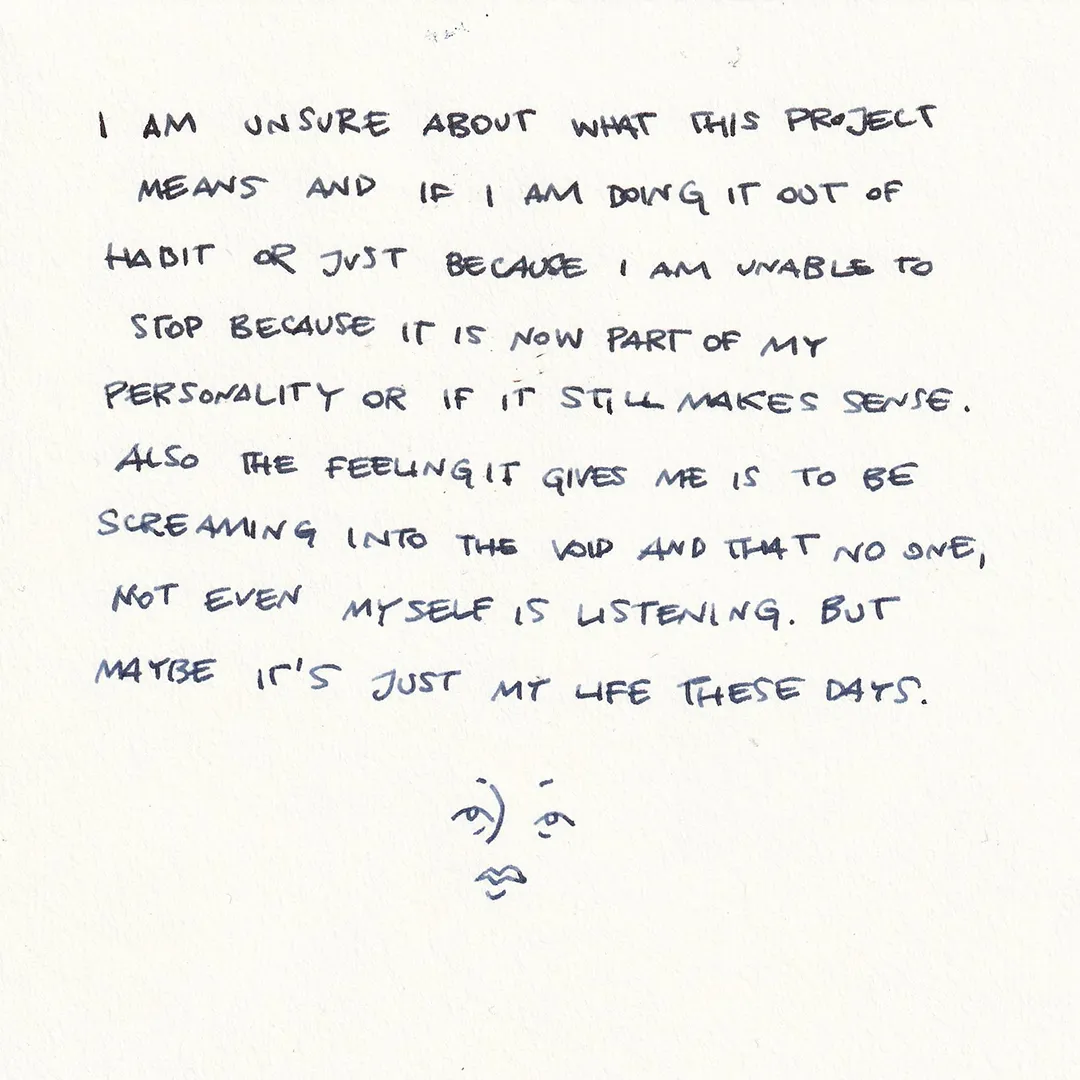 I AM UNSURE ABOUT WHAT THIS PROJECT
MEANS AND IF I AM DOING IT OUT OF
HABIT OR JUST BECAUSE I AM UNABLE TO
STOP BECAUSE IT IS NOW PART OF MY
PERSONALITY OR IF IT STILL MAKES SENSE.
ALSO THE FEELING IT GIVES ME IS TO BE
SCREAMING INTO THE VOID AND THAT NO ONE,
NOT EVEN MYSELF IS LISTENING. BUT
MAYBE IT'S JUST MY LIFE THESE DAYS.